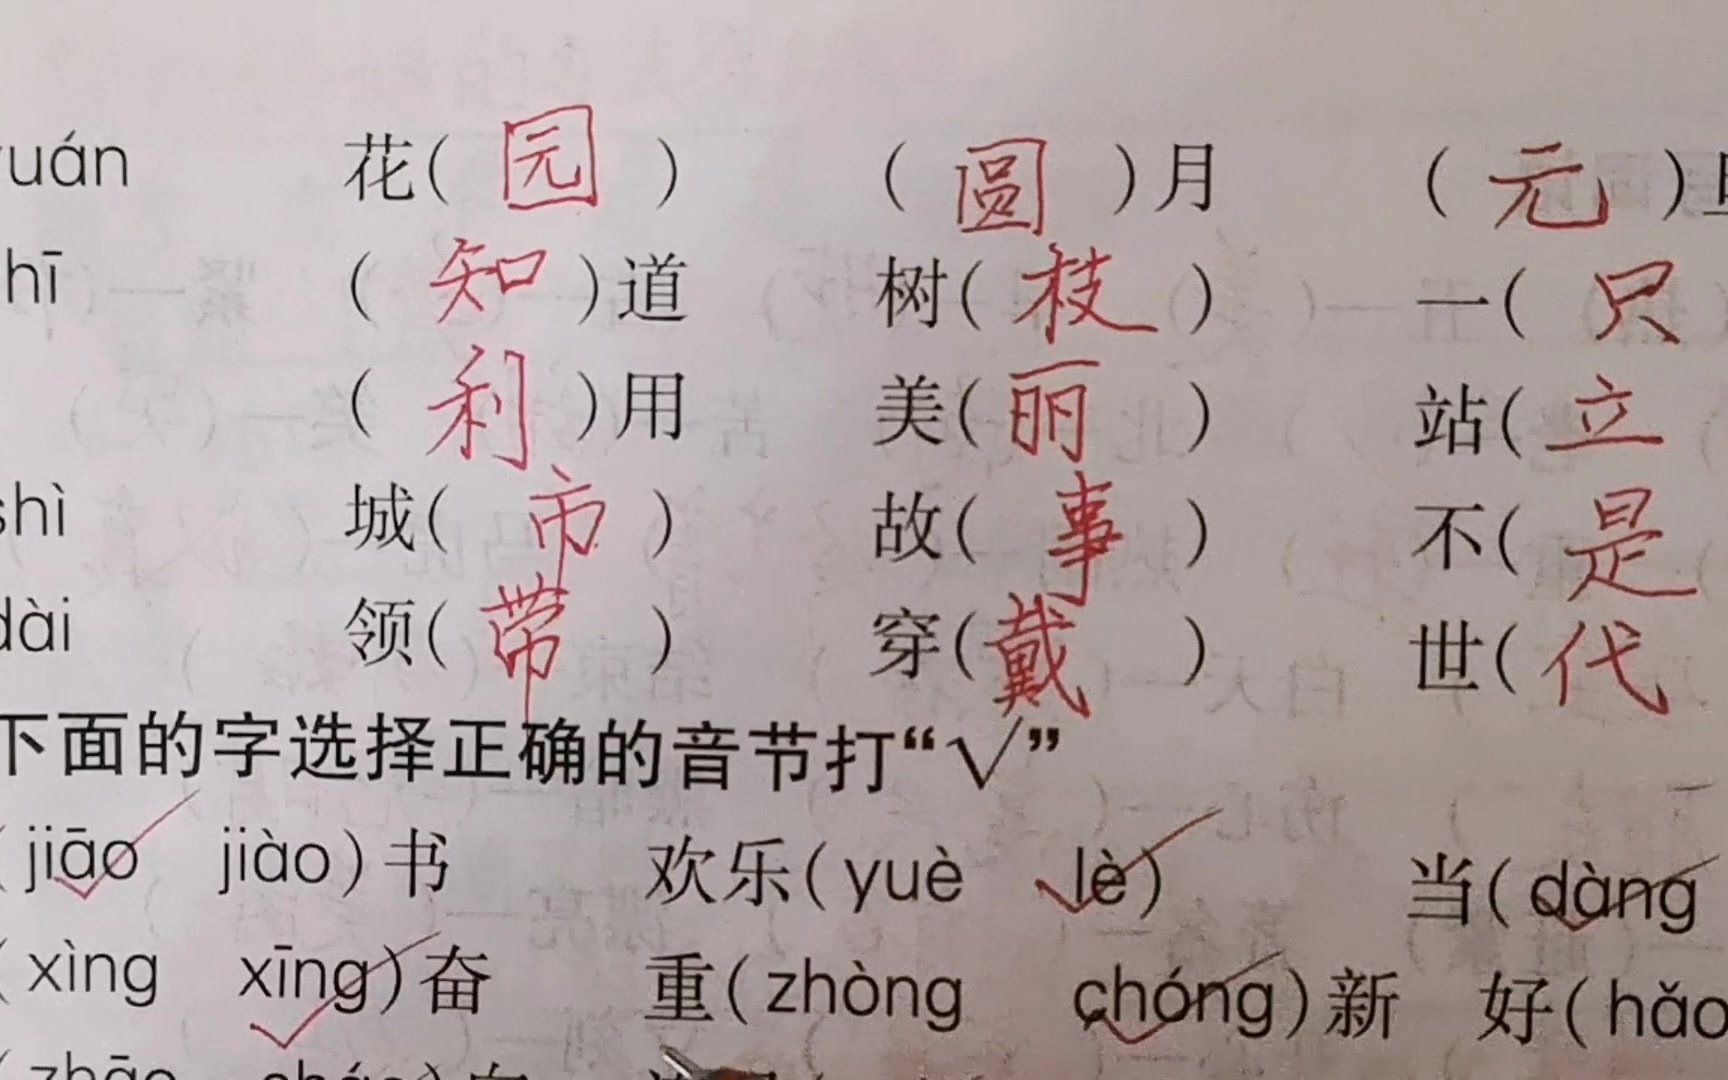 yuán 花(园) (圆)月 (元)旦
hī (知)道 树(枝) 一(只
(利)用 美(丽) 站(立
shì 城(市) 故(事) 不(是
dài 领(带) 穿(戴) 世(代
下面的字选择正确的音节打“√”
(jiāo✓ jiào)书 欢乐(yuè lè✓) 当(dàng✓
(xìng xīng✓)奋 重(zhòng chóng✓)新 好(hǎo